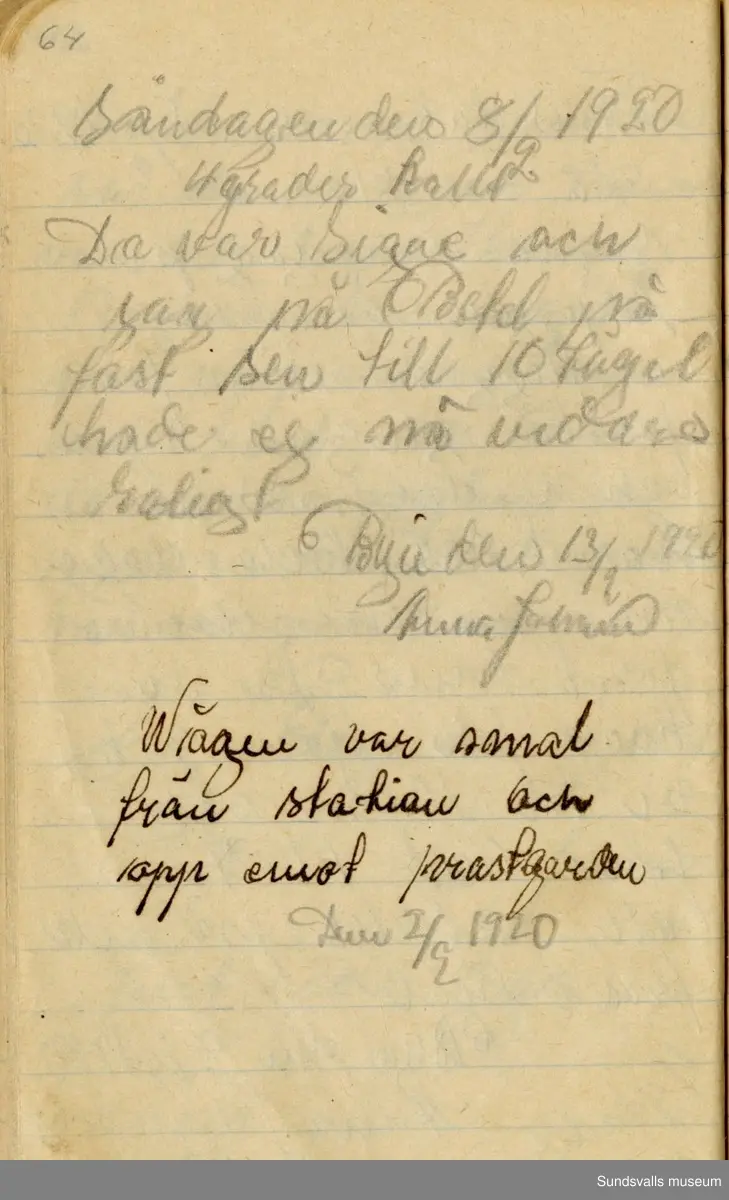 64
Söndagen den 8/2 1920
4 grader kallt
Da var Signe och
jag på
fast sen till 10 tåget
hade ej nå vidare
Roligt
Byn den 13/2 1920
Anna
Wiägen var smal
från station och
opp emot prastgarden
Den 2/2 1920
Sundsvalls museum